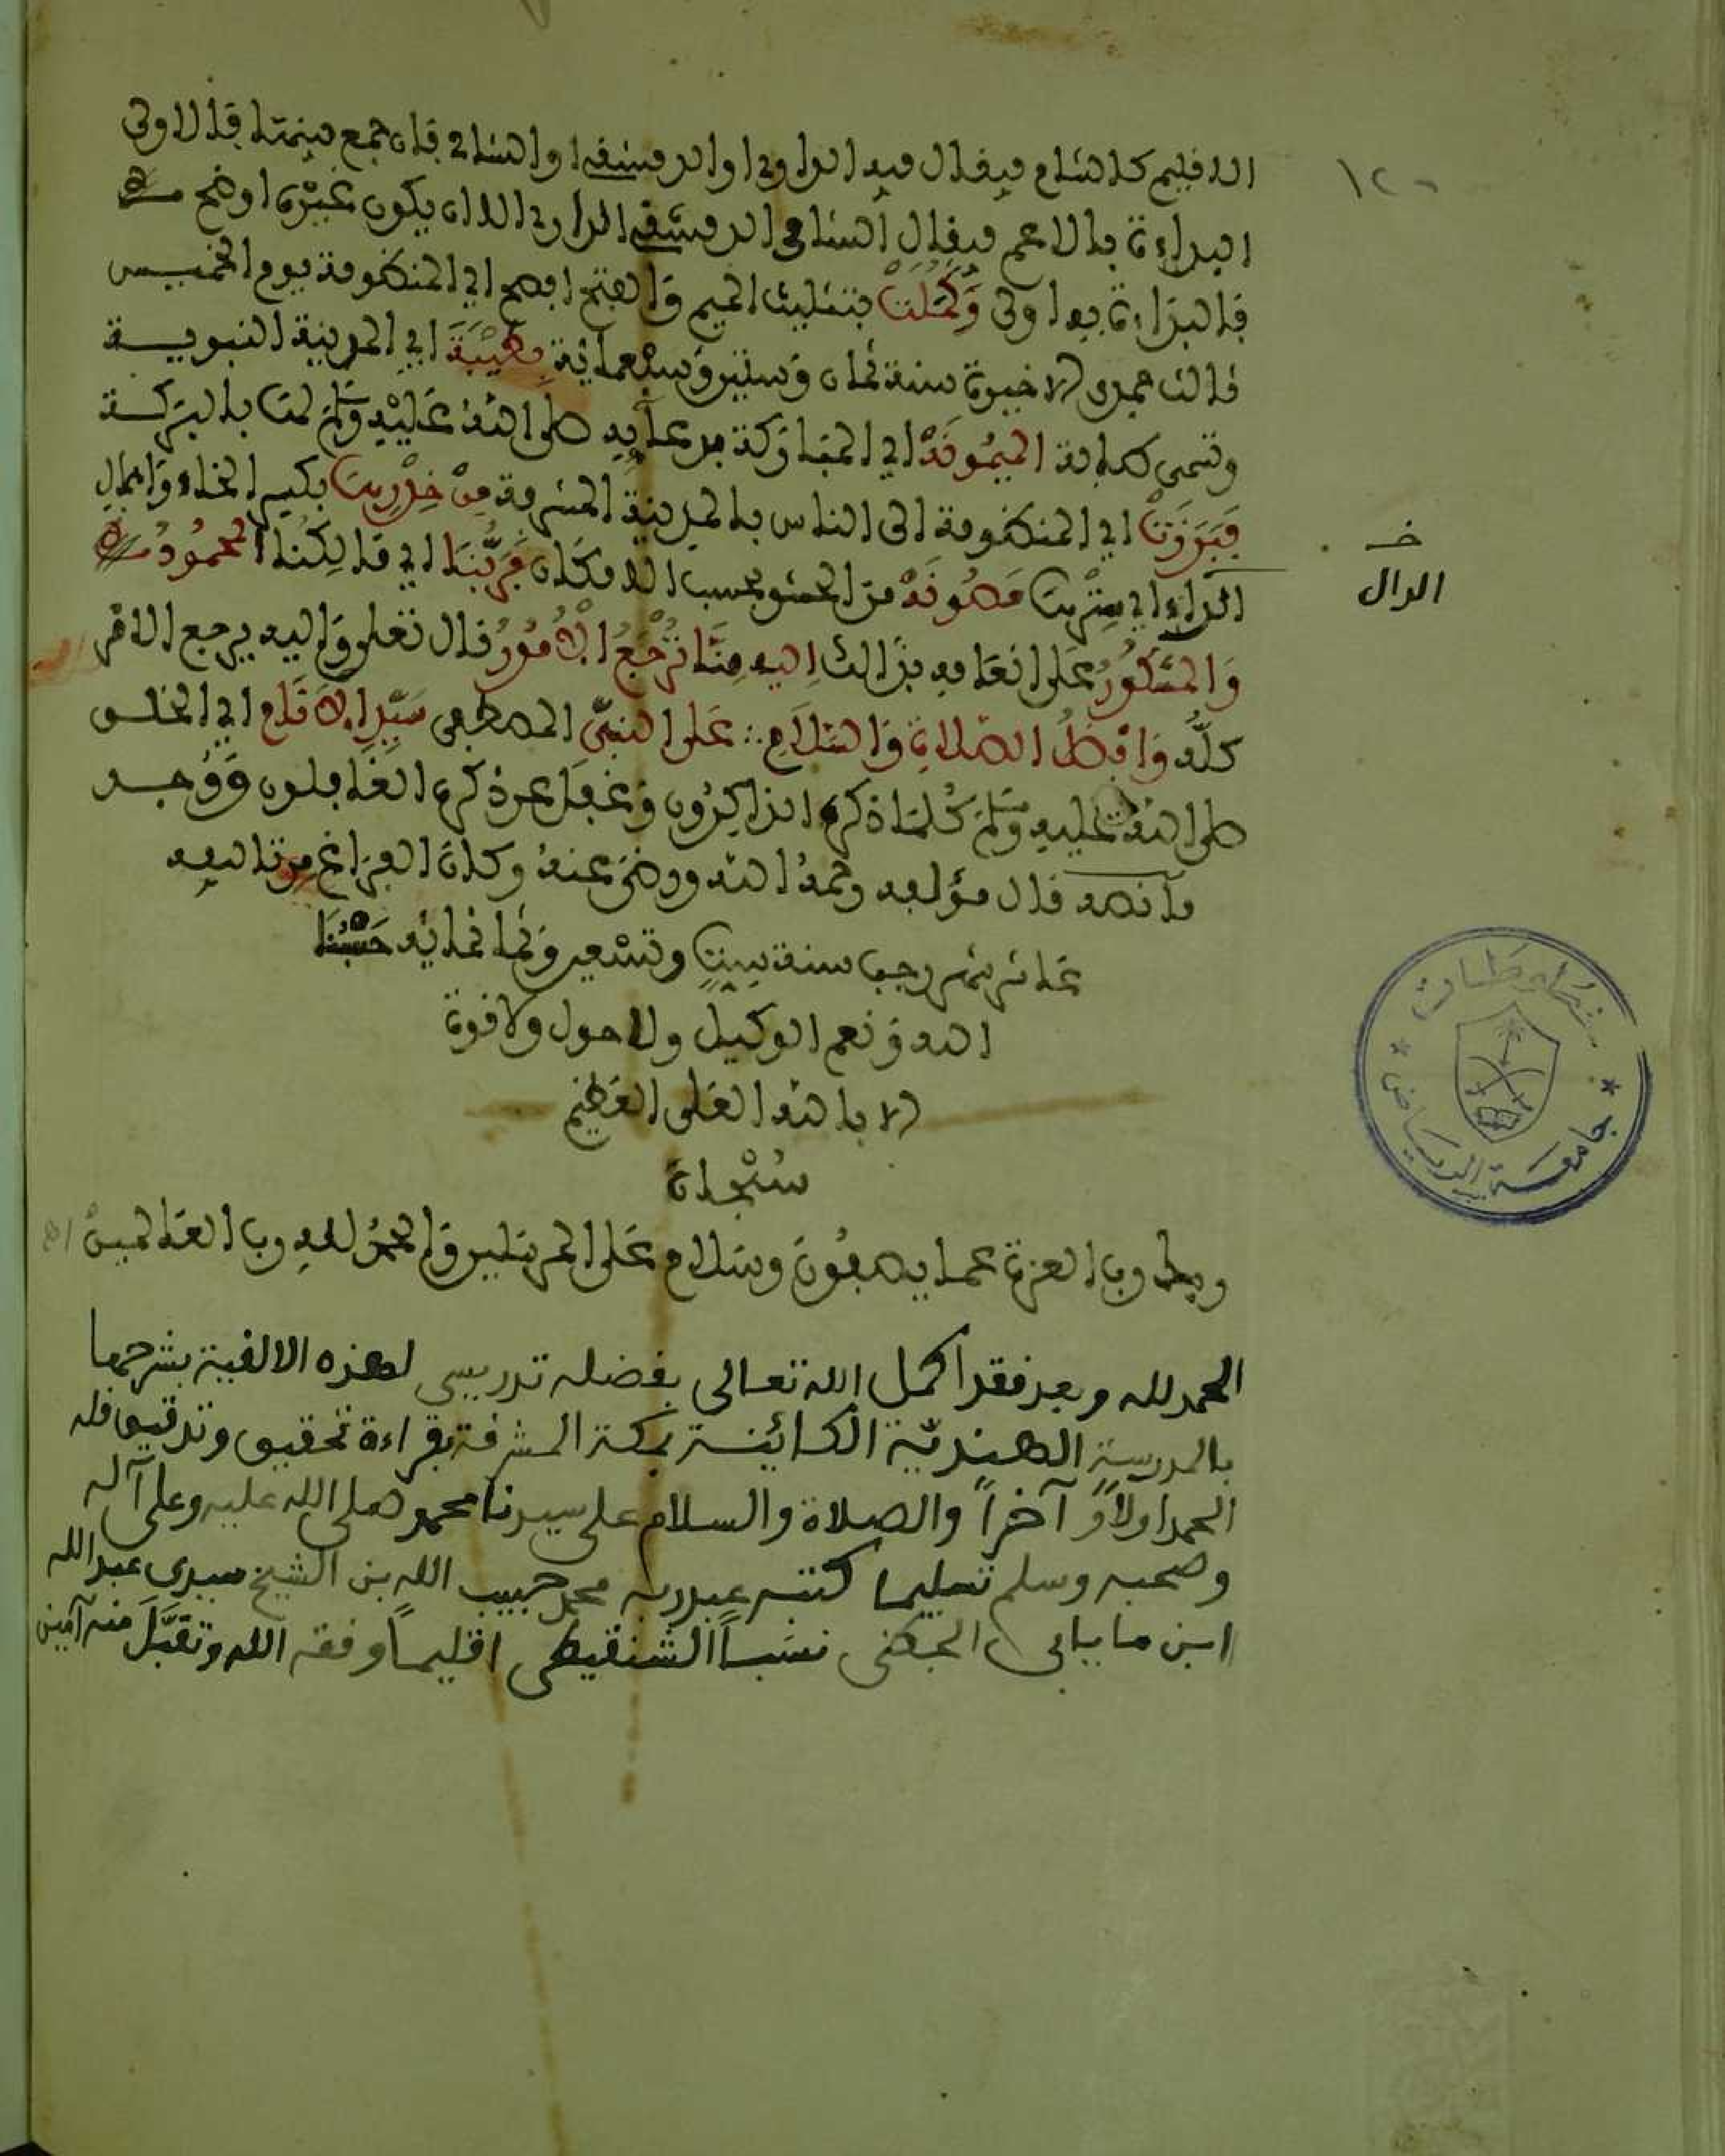 الاقليم كالشام فيقال فيه الداري او الدمشقي او الشامي فان جمع بينهما فالاولى
البداءة بالاعم فيقال الشامي الدمشقي الداري الا ان يكون غيره اوضح
فالبداءة به اولى وَكَمُلَتْ بتثليث الميم والفتح افصح اي المنظومة يوم الخميس
ثالث جمدى الاخيرة سنة ثمان وستين وسبعمائة بِطَيْبَةَ اي المدينة النبوية
وتسمى طابة الميمُونَهْ اي المباركة بدعايه صلى الله عليه وسلم لها بالبركة
فَبَرَزَتْ اي المنظومة الى الناس بالمدينة المشرفة مِنْ خِدْرِهَا بكسر الخاء واهمال
الراء اي سِتْرِهَا مَصُونَهْ من الحشو بحسب الامكان فَرَبُّنَا اي مالِكُنَا المحمُودُ
وَالمَشكُورُ على انعامه بذالك اليه مِنَّا تُرْجَعُ الأُمُورُ قال تعلى واليه يرجع الامر
كلُّه وَافضَلُ الصَّلاةِ وَالسَّلاَمِ ∴ على النبيِّ المصطفى سَيِّدِ الاَنَام اي الخلق
صلى الله عليه وسلم كُلما ذكره الذاكِرُون وغفل عن ذكره الغافلون وَوُجد
مآنصه قال مؤلفه رحمهُ الله ورضى عنهُ وكان الفراغ من تاليفه
عاشر شهر رجب سنة سِتٍّ وتسعين وثمانمائه حَسْبُنَا
الله ونعم الوكيل ولا حول ولا قوة
الا بالله العلى العظيم
سُبْحان
ربك رب العزة عما يصفُون وسلام على المرسلين والحمدُ للهِ رب العالمين اه
الحمد لله وبعد فقد اكمل الله تعالى بفضله تدريسى لهذه الالفية بشرحها
بالمدرسة الهنديّة الكائنة بمكة المشرفة بقراءة تحقيق وتدقيق فله
الحمد اولاً وآخراً والصلاة والسلام على سيدنا محمد صلى الله عليه وعلى آله
وصحبه وسلم تسليما كتبه عبد ربه محمد حبيب الله بن الشيخ سيدى عبد الله
ابن مايابى الجكنى نسَباً الشنقيطى اقليماً وفقه الله وتقبَّلَ منه آمين
١٢٠
خـ
الدال
جامعة الرياض
مخطوطات